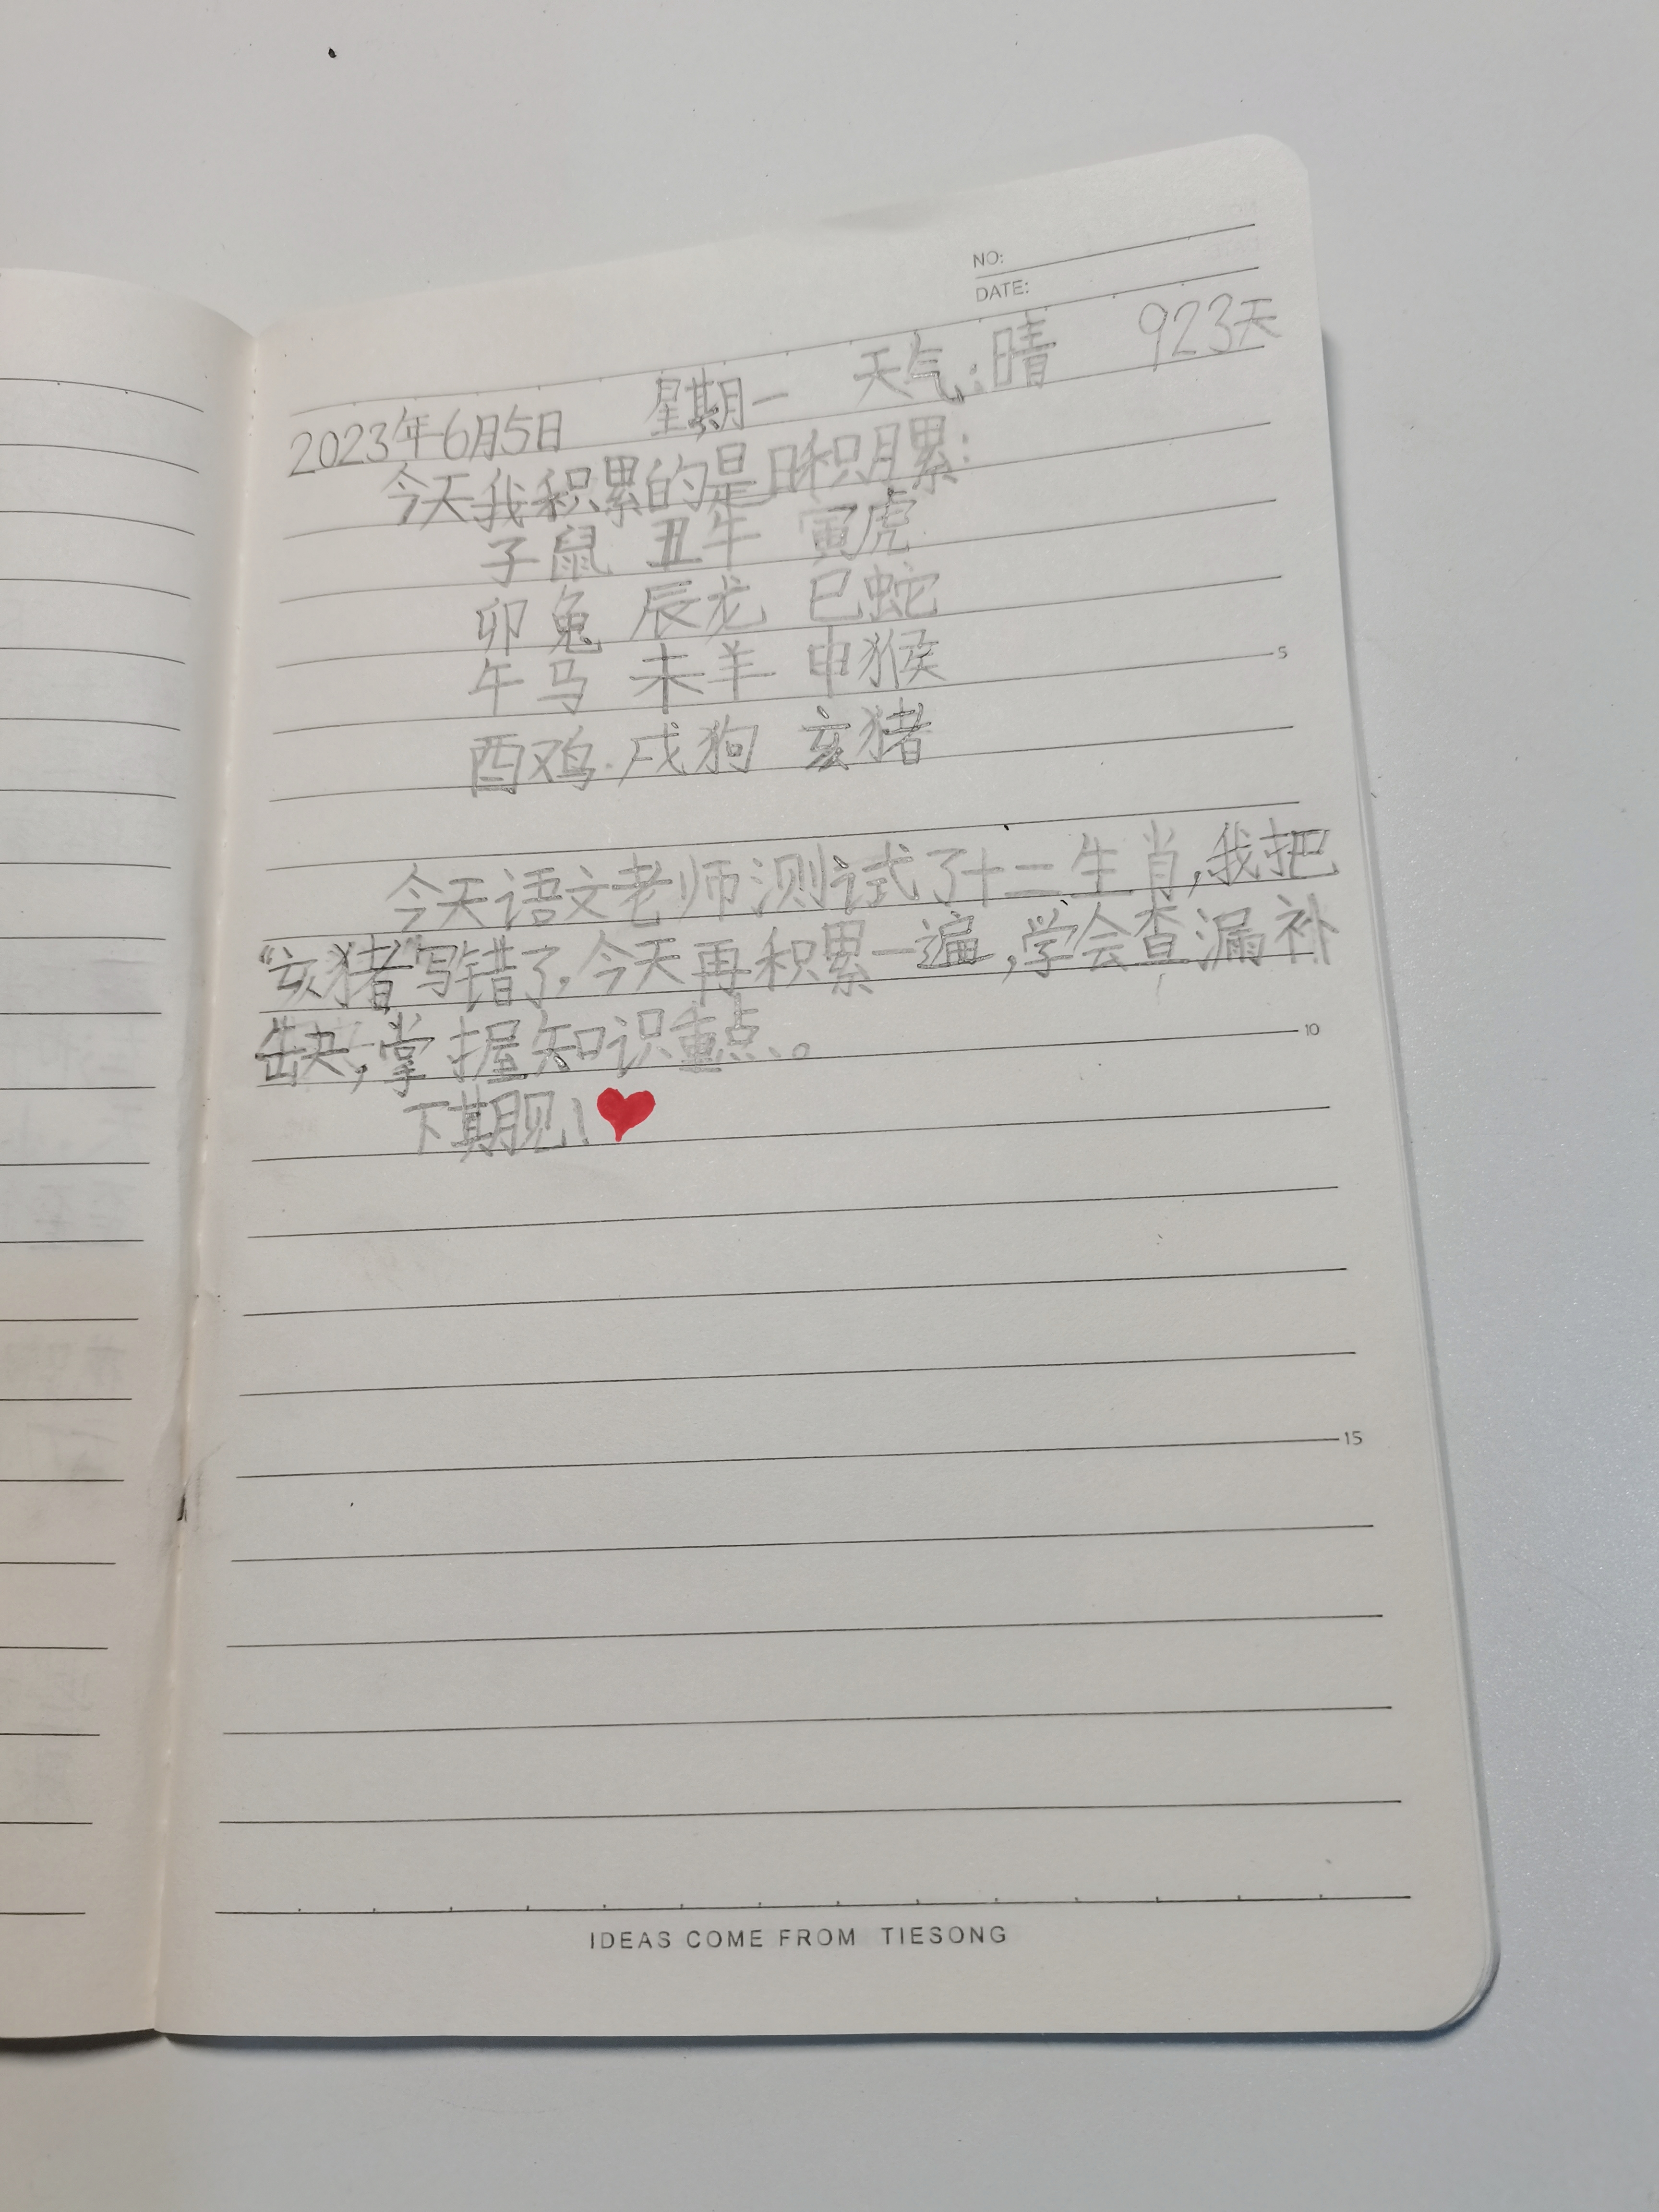 NO:
DATE:
2023年6月5日 星期一 天气:晴 923天
今天我积累的是日积月累:
子鼠 丑牛 寅虎
卯兔 辰龙 巳蛇
午马 未羊 申猴
酉鸡 戌狗 亥猪
今天语文老师测试了十二生肖,我把
“亥猪”写错了,今天再积累一遍,学会查漏补
缺,掌握知识重点。
下期见!❤
5
10
15
IDEAS COME FROM TIESONG